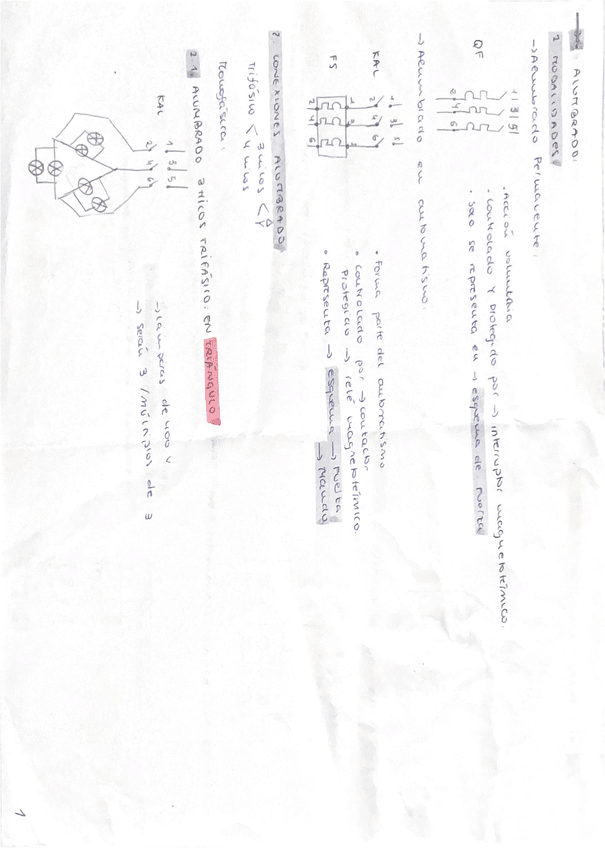 ALUMBRADO:
2 MODALIDADES
→ Alumbrado Permanente:
• Acción voluntaria
• Controlado y protegido por → interruptor magnetotérmico.
• Solo se representa en → esquema de fuerza
QF
1 3 5
2 4 6
→ Alumbrado en automatismo:
• Forma parte del automatismo
• Controlado por → contactor
Protegido → relé magnetotérmico.
• Representa → esquema → Fuerza
→ Mando
KAL
1 3 5
2 4 6
FS
1 3 5
2 4 6
2. CONEXIONES ALUMBRADO
Trifásico < 3 hilos < Δ Y
4 hilos
Monofásica:
2.1. ALUMBRADO 3 HILOS TRIFÁSICO: EN TRIÁNGULO
KAL
1 3 5
2 4 6
→ Lámparas de 400 V
→ serán 3 / múltiplos de 3
1